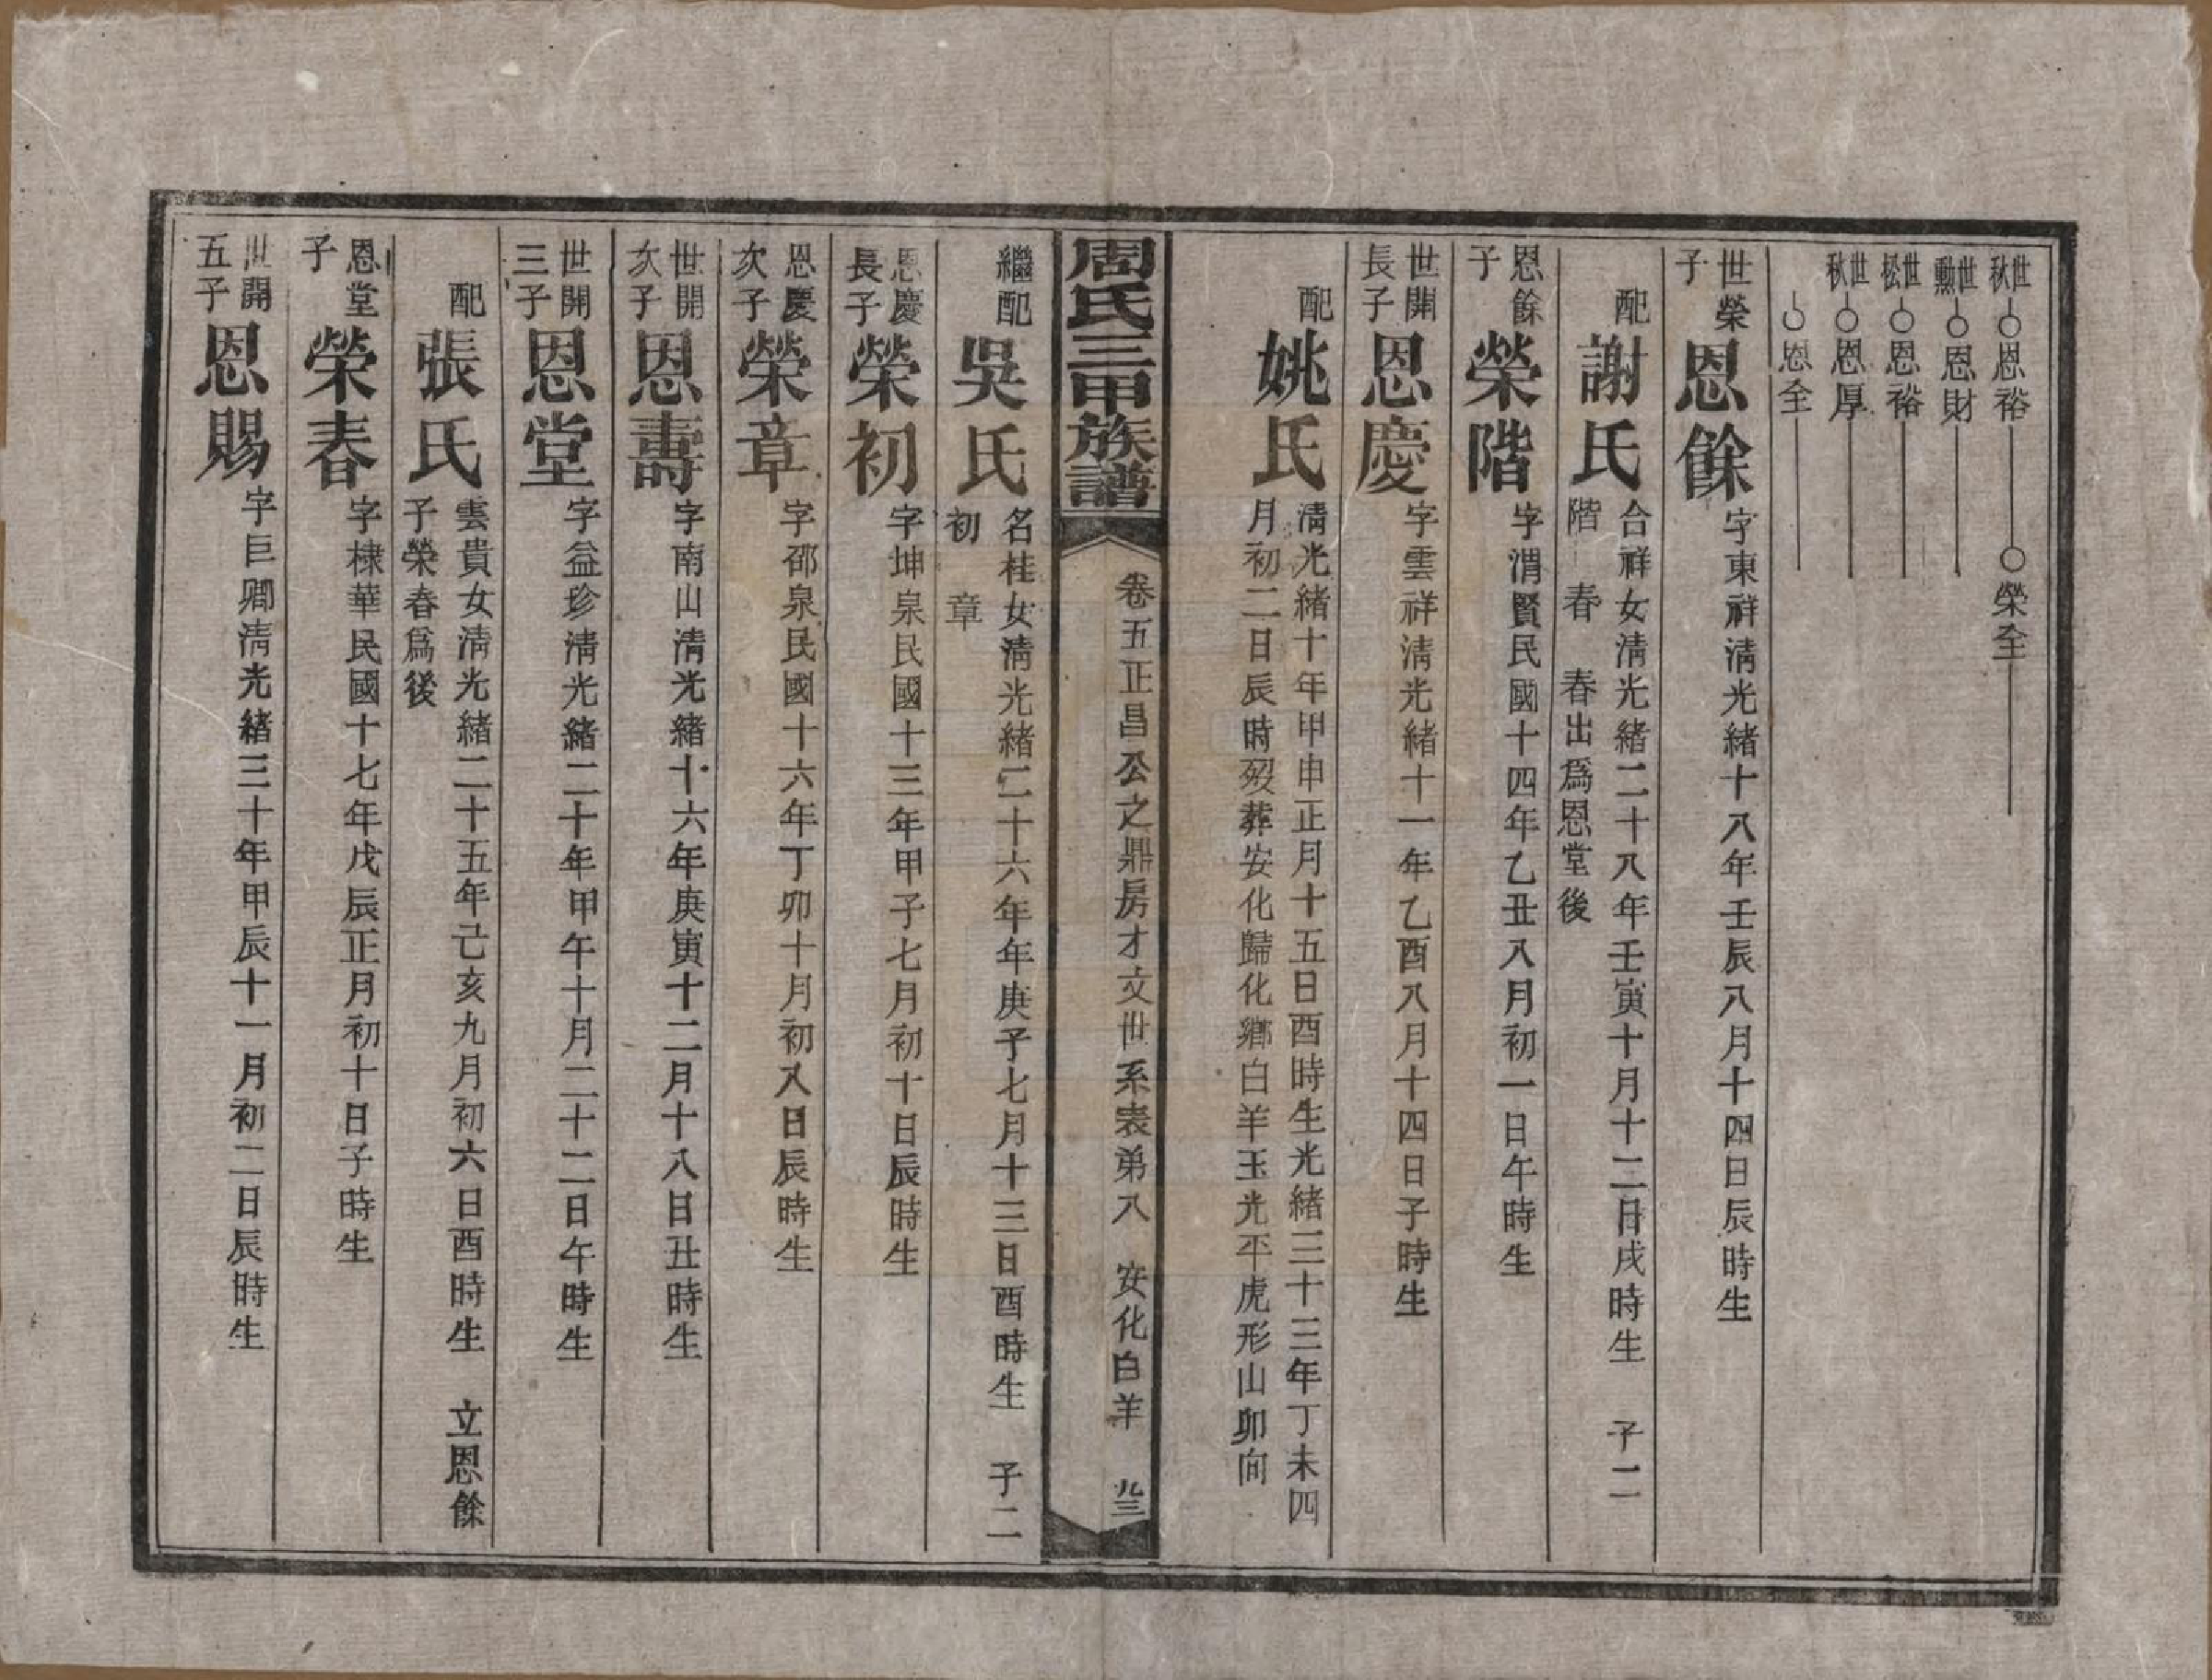 世秋 恩裕 榮全
世勳 恩財
世松 恩裕
世秋 恩厚
恩全
世榮子 恩餘 字東祥清光緒十八年壬辰八月十四日辰時生
配 謝氏 合祥女清光緒二十八年壬寅十月十二日戌時生 子二
階 春 春出爲恩堂後
恩餘子 榮階 字渭賢民國十四年乙丑八月初一日午時生
世開長子 恩慶 字雲祥清光緒十一年乙酉八月十四日子時生
配 姚氏 清光緒十年甲申正月十五日酉時生光緒三十三年丁未四
月初二日辰時歿葬安化歸化鄉白羊玉光平虎形山卯向
周氏三甲族譜 卷五正昌公之鼎房才文世系表弟八 安化白羊 九三
繼配 吳氏 名桂女清光緒二十六年年庚子七月十三日酉時生 子二
初 章
恩慶長子 榮初 字坤泉民國十三年甲子七月初十日辰時生
恩慶次子 榮章 字邵泉民國十六年丁卯十月初八日辰時生
世開次子 恩壽 字南山清光緒十六年庚寅十二月十八日丑時生
世開三子 恩堂 字益珍清光緒二十年甲午十月二十二日午時生
配 張氏 雲貴女清光緒二十五年己亥九月初六日酉時生 立恩餘
子榮春爲後
恩堂子 榮春 字棣華民國十七年戊辰正月初十日子時生
世開五子 恩賜 字巨卿清光緒三十年甲辰十一月初二日辰時生